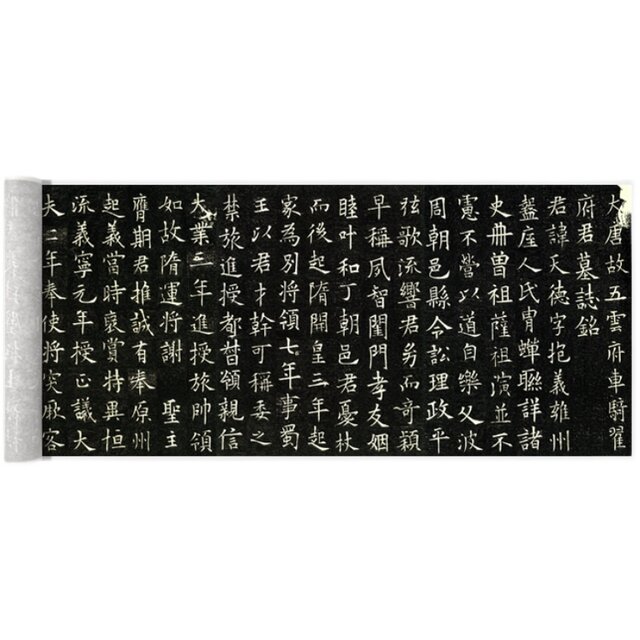 大唐故五雲府車騎翟
府君墓誌銘
君諱天德字抱義雍州
盩厔人氏冑蟬聮詳諸
史冊曽祖薩祖演並不
憲不營以道自樂父波
周朝邑縣令訟理政平
弦歌流響君㓜而奇穎
早稱夙智閨門孝友姻
睦叶和丁朝邑君憂杖
而後起隋開皇三年起
家為別將領七年事蜀
王以君才幹可稱委之
禁旅進授都督領親信
大業三年進授旅帥領
如故隋運將謝聖主
膺期君推誠有奉原州
起義當時裒賞特異恒
流義寧元年授正議大
夫二年奉使將突厥客